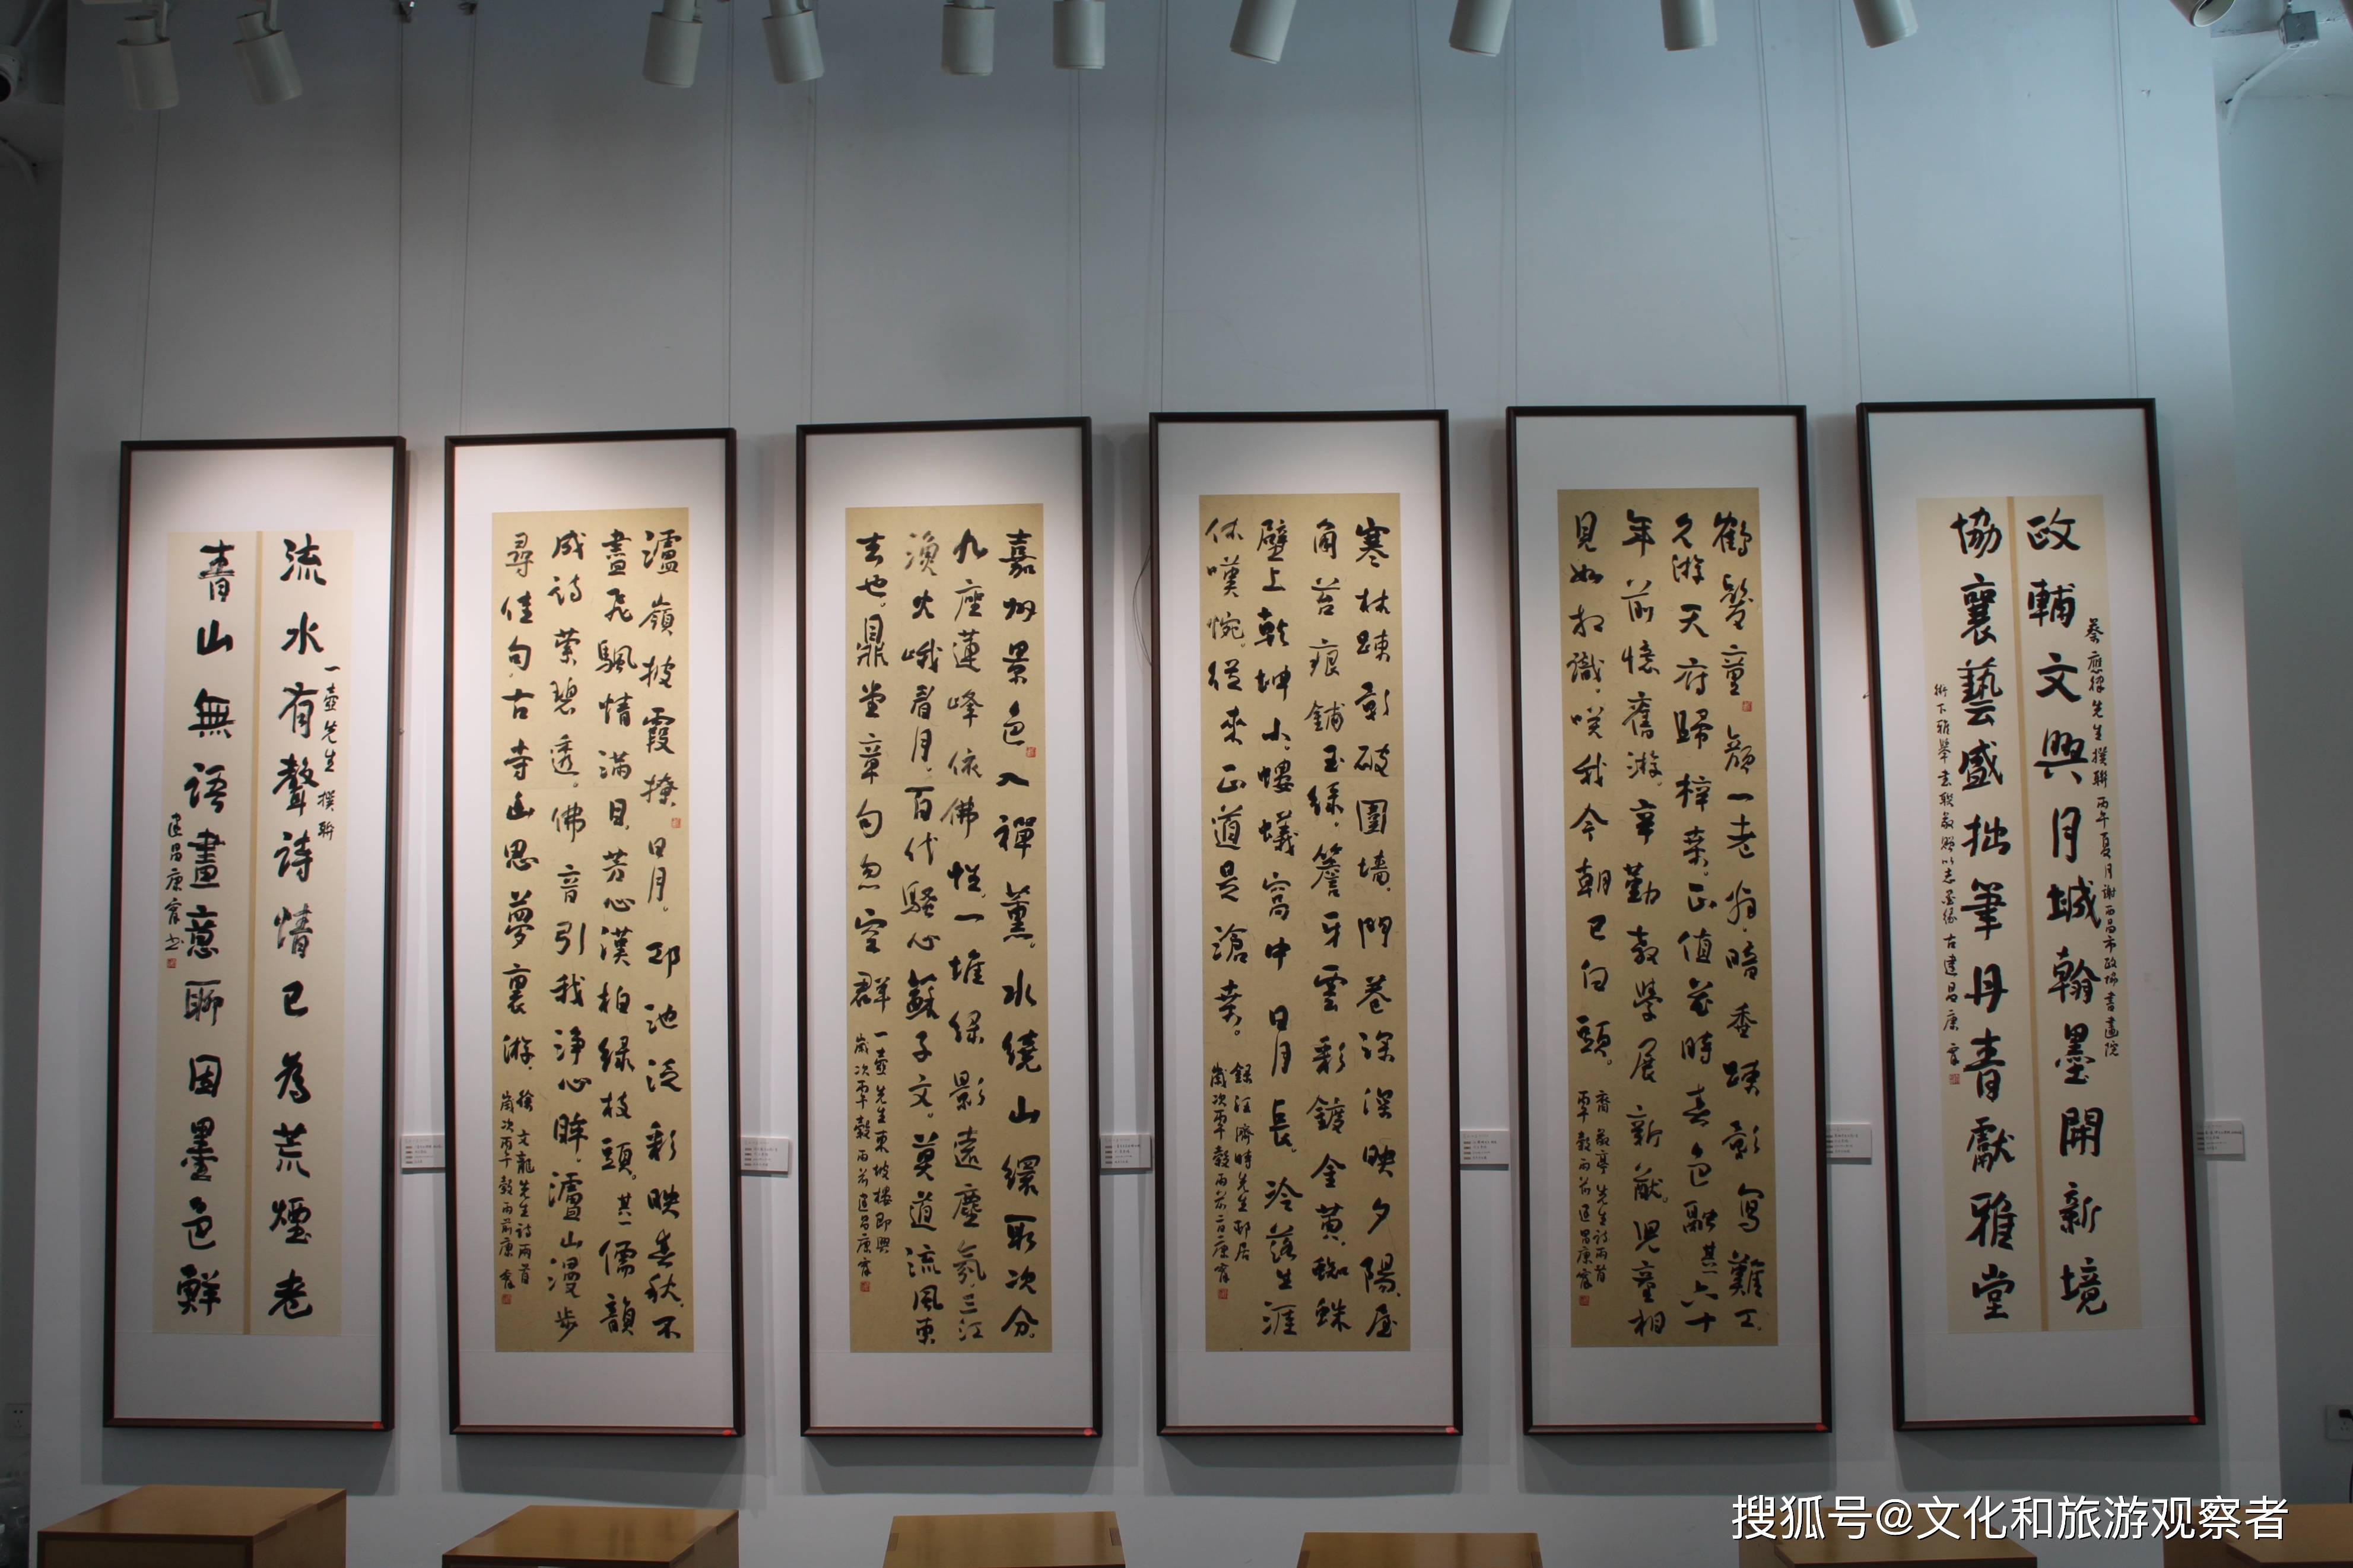 政輔文興月城翰墨開新境
蔡應律先生撰聯丙午夏月謝西昌市政協書畫院
協襄藝盛拙筆丹青獻雅堂
下雅舉書聯敬贈以志墨緣古建昌康寧
鶴髮童顏一老翁暗香疎影寫難工
久游天府歸梓桑正值花時春色融其一六十
年前憶舊游辛勤教學展新猷兒童相
見如相識咲我今朝已白頭
敬亭先生詩兩首
丙午穀雨前建昌康寧
寒林疎影破圍墻門巷深深映夕陽屋
角苔痕鋪玉綠簷牙雲彩鍍金黃蜘蛛
壁上乾坤小螻蟻窩中日月長冷落生涯
休嘆惋從來正道是滄桑
錄汪濟時先生邨居
歲次丙午穀雨前二日康寧
嘉州景色入禪薰水繞山縈取次分
九座蓮峰依佛性一堆綠影遠塵氛三江
漁火峨眉月百代騷心蘇子文莫道流風東
去也鼎堂章句忽空群
一壺先生東坡樓即興
歲次丙午穀雨前建昌康寧
瀘嶺披霞撩日月邛池泛彩映春秋不
盡飛颿情滿目芳心漢柏綠枝頭其一儒韻
成詩縈碧透佛音引我淨心眸瀘山漫步
尋佳句古寺幽思夢裏游
徐文龍先生詩兩首
歲次丙午穀雨前康寧
流水有聲詩情已為荒煙老
一壺先生撰聯
青山無語畫意聊因墨色鮮
建昌康寧書
搜狐号@文化和旅游观察者